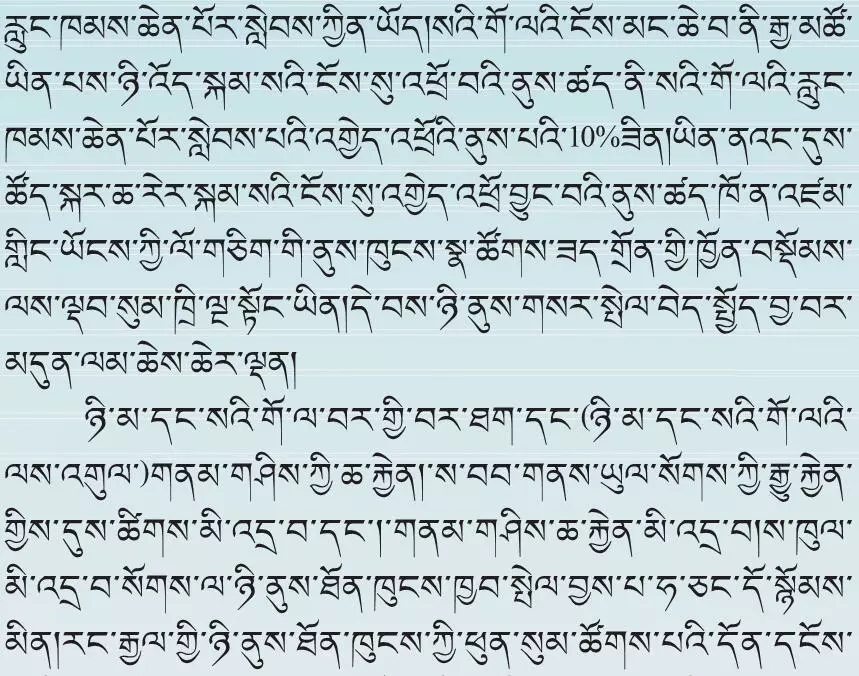 རླུང་ཁམས་ཆེན་པོར་སླེབས་ཀྱིན་ཡོད།སའི་གོ་ལའི་ངོས་མང་ཆེ་བ་ནི་རྒྱ་མཚོ་
ཡིན་པས་ཉི་འོད་སྐམ་སའི་ངོས་སུ་འཕྲོ་བའི་ནུས་ཚད་ནི་སའི་གོ་ལའི་རླུང་
ཁམས་ཆེན་པོར་སླེབས་པའི་འགྱེད་འཕྲོའི་ནུས་པའི་10%ཟིན།ཡིན་ནའང་དུས་
ཚོད་སྐར་ཆ་རེར་སྐམ་སའི་ངོས་སུ་འགྱེད་འཕྲོ་བྱུང་བའི་ནུས་ཚད་ཁོ་ན་འཛམ་
གླིང་ཡོངས་ཀྱི་ལོ་གཅིག་གི་ནུས་ཁུངས་སྣ་ཚོགས་ཟད་གྲོན་གྱི་ཁྱོན་བསྡོམས་
ལས་ལྡབ་སུམ་ཁྲི་ལྔ་སྟོང་ཡིན།དེ་བས་ཉི་ནུས་གསར་སྤེལ་བེད་སྤྱོད་བྱ་བར་
མདུན་ལམ་ཆེས་ཆེར་ལྡན།
ཉི་མ་དང་སའི་གོ་ལ་བར་གྱི་བར་ཐག་དང་(ཉི་མ་དང་སའི་གོ་ལའི་
ལས་འགུལ་)གནམ་གཤིས་ཀྱི་ཆ་རྐྱེན།ས་བབ་གནས་ཡུལ་སོགས་ཀྱི་རྒྱུ་རྐྱེན་
གྱིས་དུས་ཚིགས་མི་འདྲ་བ་དང་།་གནམ་གཤིས་ཆ་རྐྱེན་མི་འདྲ་བ།ས་ཁུལ་
མི་འདྲ་བ་སོགས་ལ་ཉི་ནུས་ཐོན་ཁུངས་ཁྱབ་སྤེལ་བྱས་པ་ཧ་ཅང་དོ་སྙོམས་
མིན།རང་རྒྱལ་གྱི་ཉི་ནུས་ཐོན་ཁུངས་ཀྱི་ཕུན་སུམ་ཚོགས་པའི་དོན་དངོས་